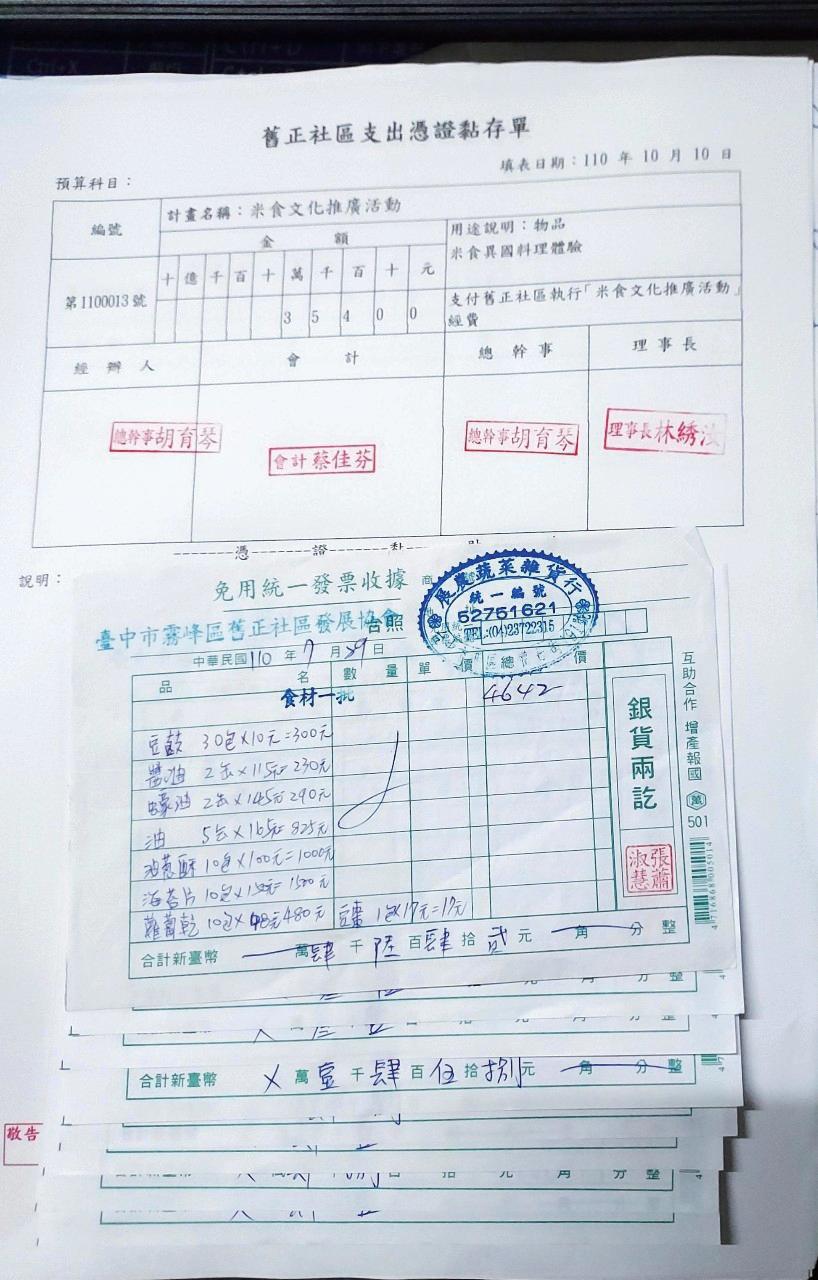 Ctrl+X
Ctrl+D
舊正社區支出憑證黏存單
填表日期：110 年 10 月 10 日
預算科目：
編號
計畫名稱：米食文化推廣活動
金 額
用途說明：物品
米食異國料理體驗
十 億 千 百 十 萬 千 百 十 元
第1100013號
3 5 4 0 0
支付舊正社區執行「米食文化推廣活動」
經費
經 辦 人
會 計
總 幹 事
理 事 長
總幹事胡育琴
會計蔡佳芬
總幹事胡育琴
理事長林綉汝
憑 證 黏 貼
說明：
免用統一發票收據
臺中市霧峰區舊正社區發展協會
台照
展農蔬菜雜貨行
統一編號
52751621
TEL:(04)23722315
中華民國110年7月29日
品 名 數 量 單 價 總 價
食材一批
4642
豆鼓 30包×10元=300元
醬油 2缶×115元=230元
蠔油 2缶×145元290元
油 5缶×165元=825元
油蔥酥 10包×100元=1000元
海苔片 10包×150元=1500元
蘿蔔乾 10包×48元480元 豆棗 1包×17元=17元
合計新臺幣 萬肆千陸百肆拾貳元 角 分 整
銀貨兩訖
張蕭淑慧
互助合作 增產報國
萬
501
4716868005014
合計新臺幣 萬壹千肆百伍拾捌元 角 分 整
敬告
元 角 分 整